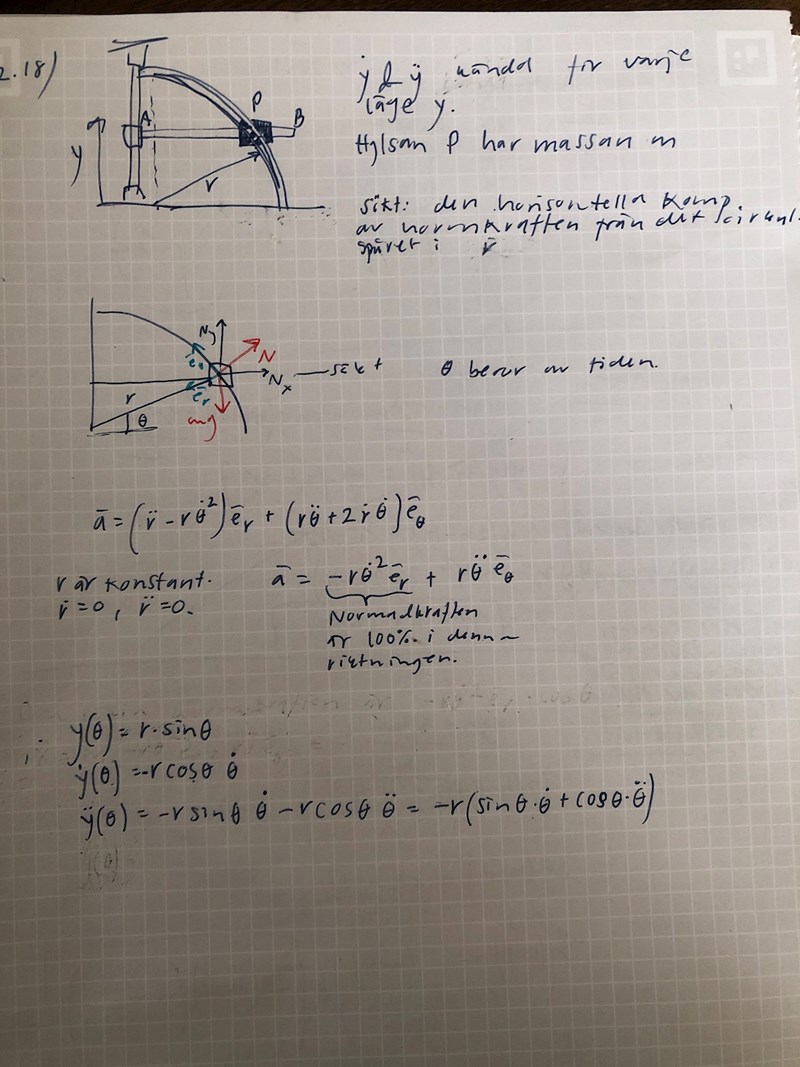 2.18)
ẏ & ÿ kända för varje
läge y.
Hylsan P har massan m
sökt: den horisontella komp.
av normkraften från det cirkul.
spåret i r̄
A
P
B
y
r
Ny
N
ēθ
Nx — sökt
θ beror av tiden.
ēr
r
θ
mg
ā = (r̈ - rθ̇²)ēr + (rθ̈ + 2ṙθ̇)ēθ
r är konstant.
ṙ=0, r̈=0.
ā = -rθ̇²ēr + rθ̈ ēθ
Normalkraften
är 100% i denna
riktningen.
y(θ) = r·sinθ
ẏ(θ) = -r cosθ θ̇
ÿ(θ) = -r sinθ θ̇ - r cosθ θ̈ = -r(sinθ·θ̇ + cosθ·θ̈)